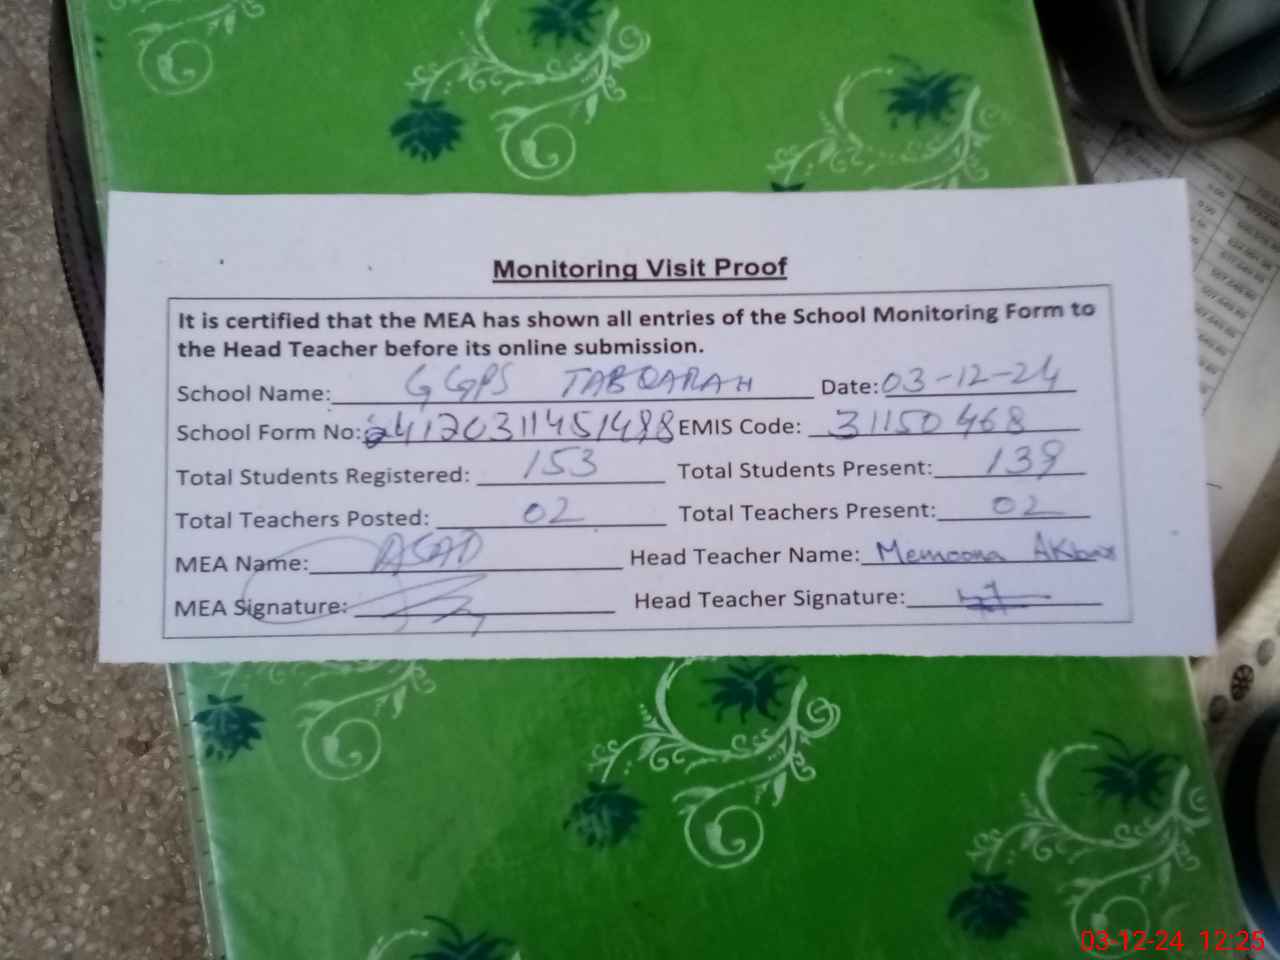 Monitoring Visit Proof
It is certified that the MEA has shown all entries of the School Monitoring Form to
the Head Teacher before its online submission.
School Name: GGPS TABQARAH Date: 03-12-24
School Form No: 24120311451488 EMIS Code: 31150468
Total Students Registered: 153 Total Students Present: 139
Total Teachers Posted: 02 Total Teachers Present: 02
MEA Name: ASAD Head Teacher Name: Memoona Akbar
MEA Signature: Head Teacher Signature:
03-12-24 12:25